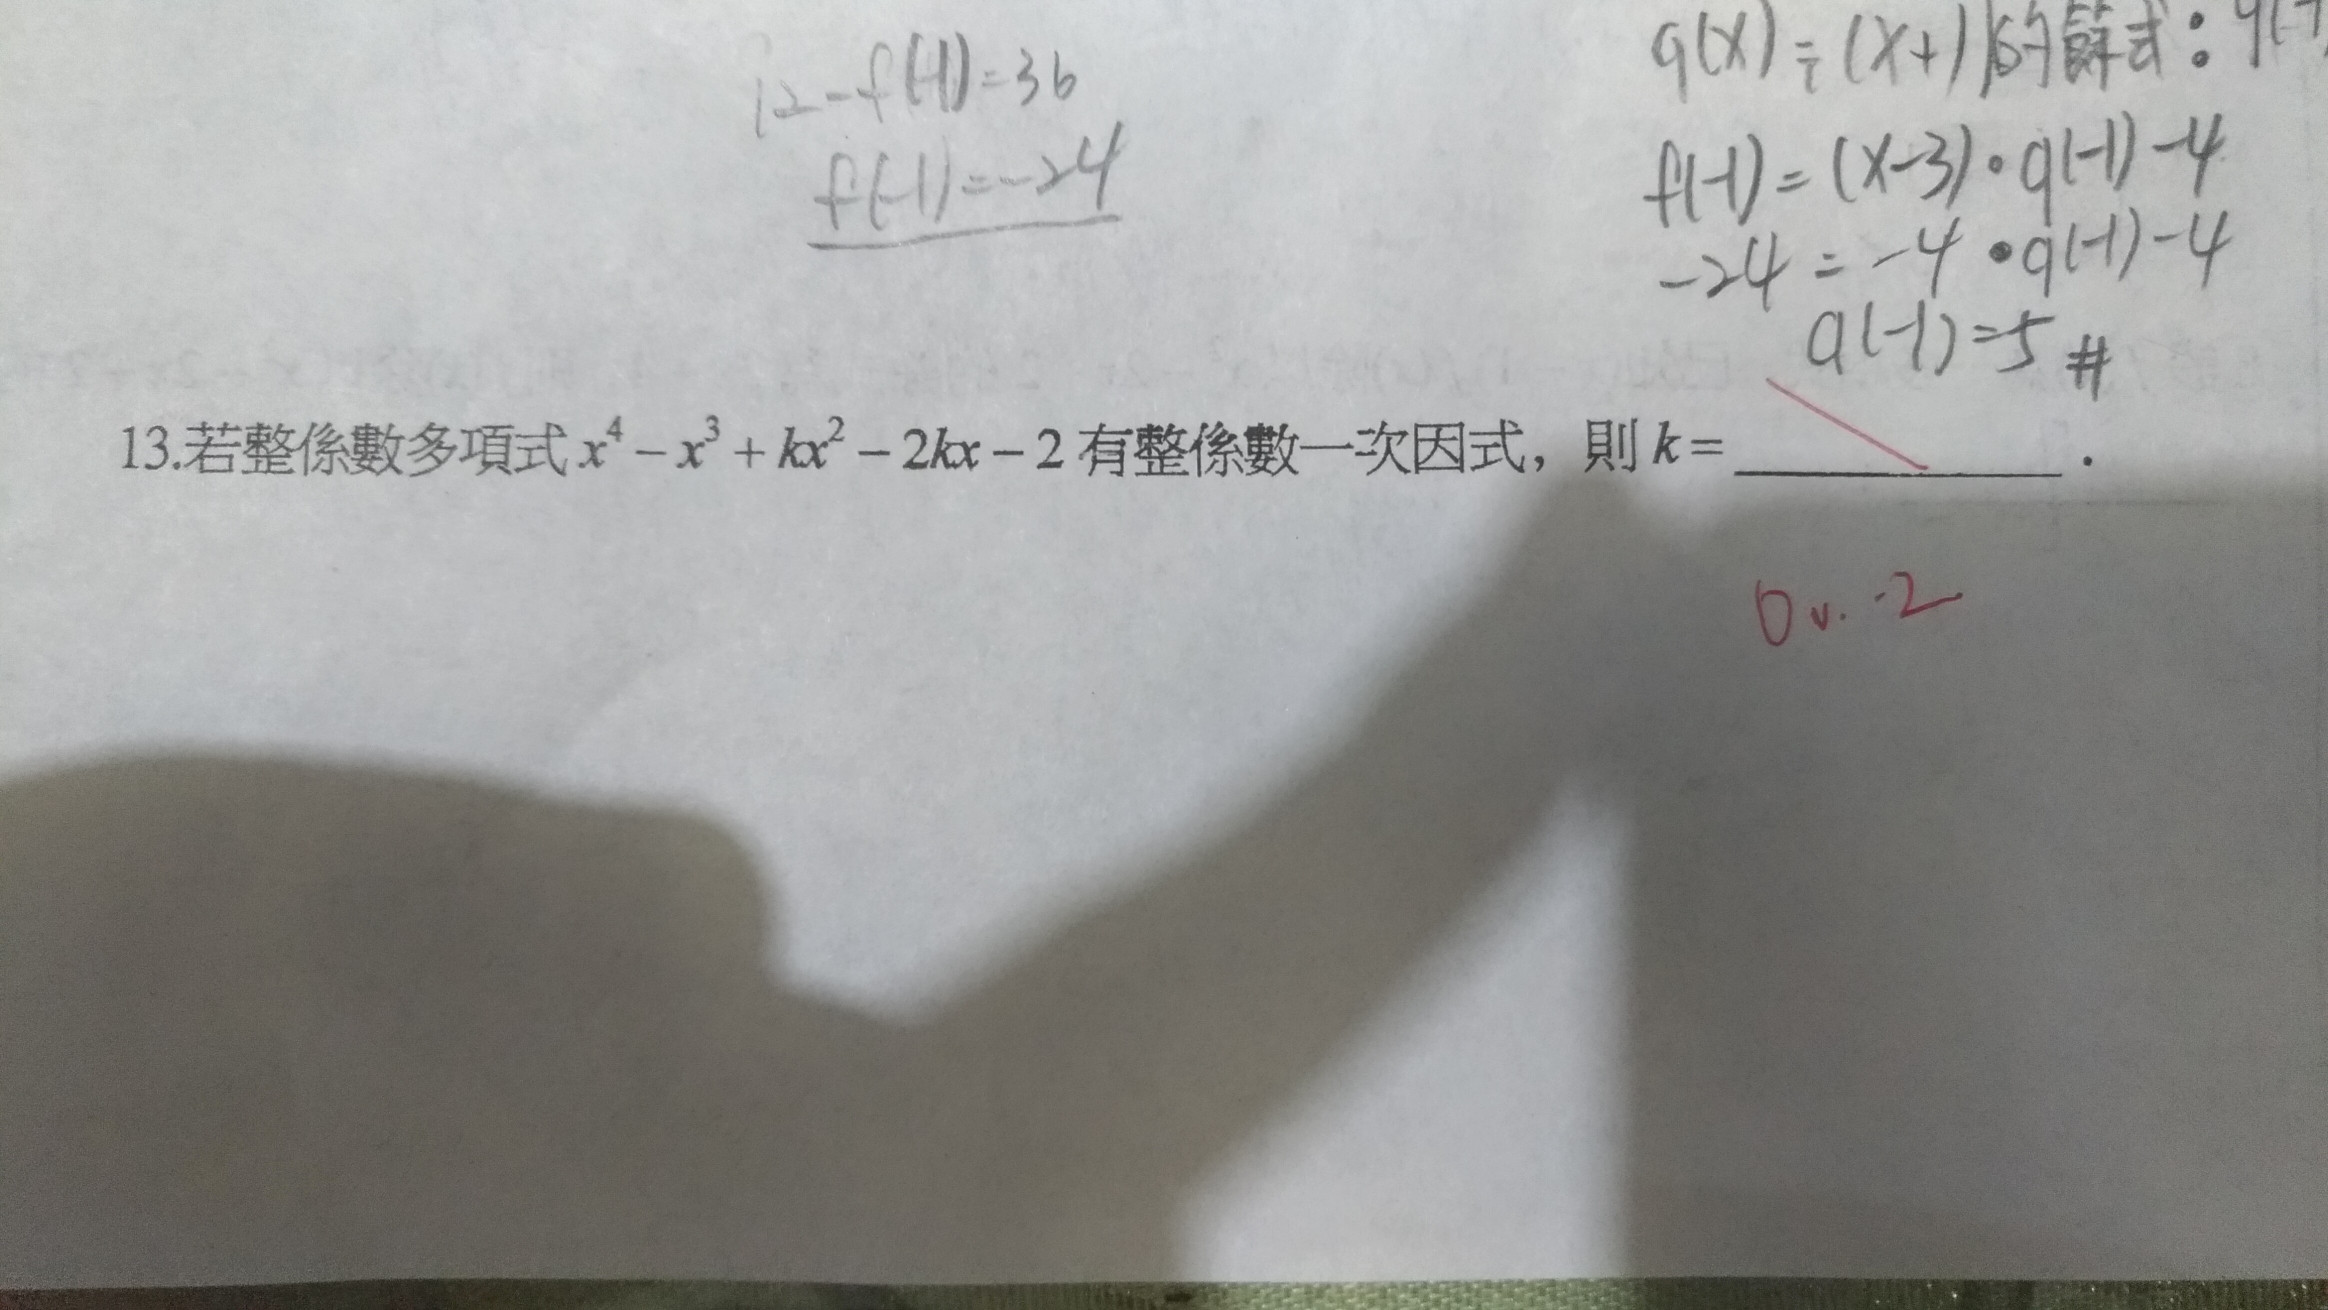 12-f(-1)=36
f(-1)=-24
q(x)÷(x+1)的餘式：q(-1)
f(-1)=(x-3)·q(-1)-4
-24=-4·q(-1)-4
q(-1)=5 #
13.若整係數多項式 x⁴ − x³ + kx² − 2kx − 2 有整係數一次因式，則 k = ________ .
0 v. -2